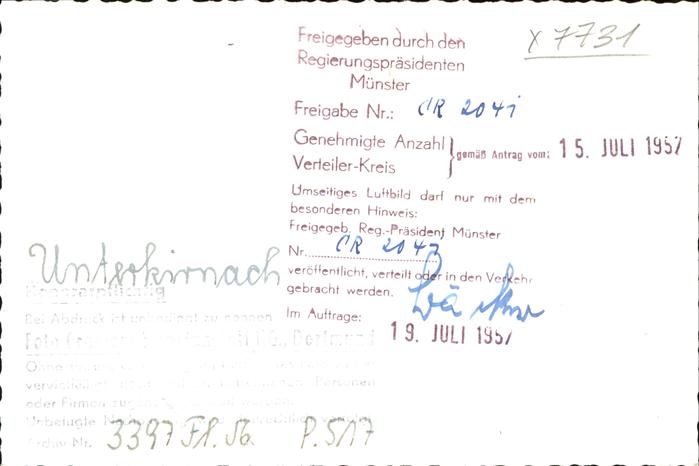 x 7731
Freigegeben durch den
Regierungspräsidenten
Münster
Freigabe Nr.: CR 2041
Genehmigte Anzahl
Verteiler-Kreis
gemäß Antrag vom: 15. JULI 1957
Umseitiges Luftbild darf nur mit dem
besonderen Hinweis:
Freigegeb. Reg.-Präsident Münster
Nr. CR 204
veröffentlicht, verteilt oder in den Verkehr
gebracht werden.
Im Auftrage:
19. JULI 1957
Unterkirnach
Honorarpflichtig
Bei Abdruck ist unbedingt zu nennen
Foto Dortmund
Ohne
Personen
oder Firmen
Unbefugte
Archiv Nr. 3397 Fl. Sb. P.5/17